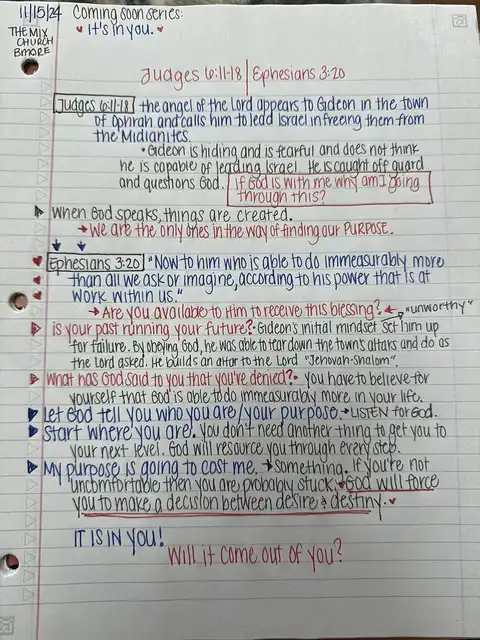 11/15/24 Coming soon series:
♥ It's in you. ♥
THE MIX
CHURCH
BMORE
Judges 6:11-18 | Ephesians 3:20
Judges 6:11-18 the angel of the Lord appears to Gideon in the town
of Ophrah and calls him to lead Israel in freeing them from
the Midianites.
• Gideon is hiding and is fearful and does not think
he is capable of leading Israel. He is caught off guard
and questions God. If God is with me why am I going
through this?
When God speaks, things are created.
→ We are the only ones in the way of finding our PURPOSE.
Ephesians 3:20 "Now to him who is able to do immeasurably more
than all we ask or imagine, according to his power that is at
work within us."
→ Are you available to Him to receive this blessing? "unworthy"
is your past running your future? • Gideon's initial mindset set him up
for failure. By obeying God, he was able to tear down the town's altars and do as
the Lord asked. He builds an altar to the Lord "Jehovah-Shalom".
What has God said to you that you've denied? • you have to believe for
yourself that God is able to do immeasurably more in your life.
Let God tell you who you are/your purpose. → LISTEN for God.
Start where you are. You don't need another thing to get you to
your next level. God will resource you through every step.
My purpose is going to cost me. → something. If you're not
uncomfortable then you are probably stuck. ♥ God will force
you to make a decision between desire & destiny. ♥
IT IS IN YOU!
Will it come out of you?